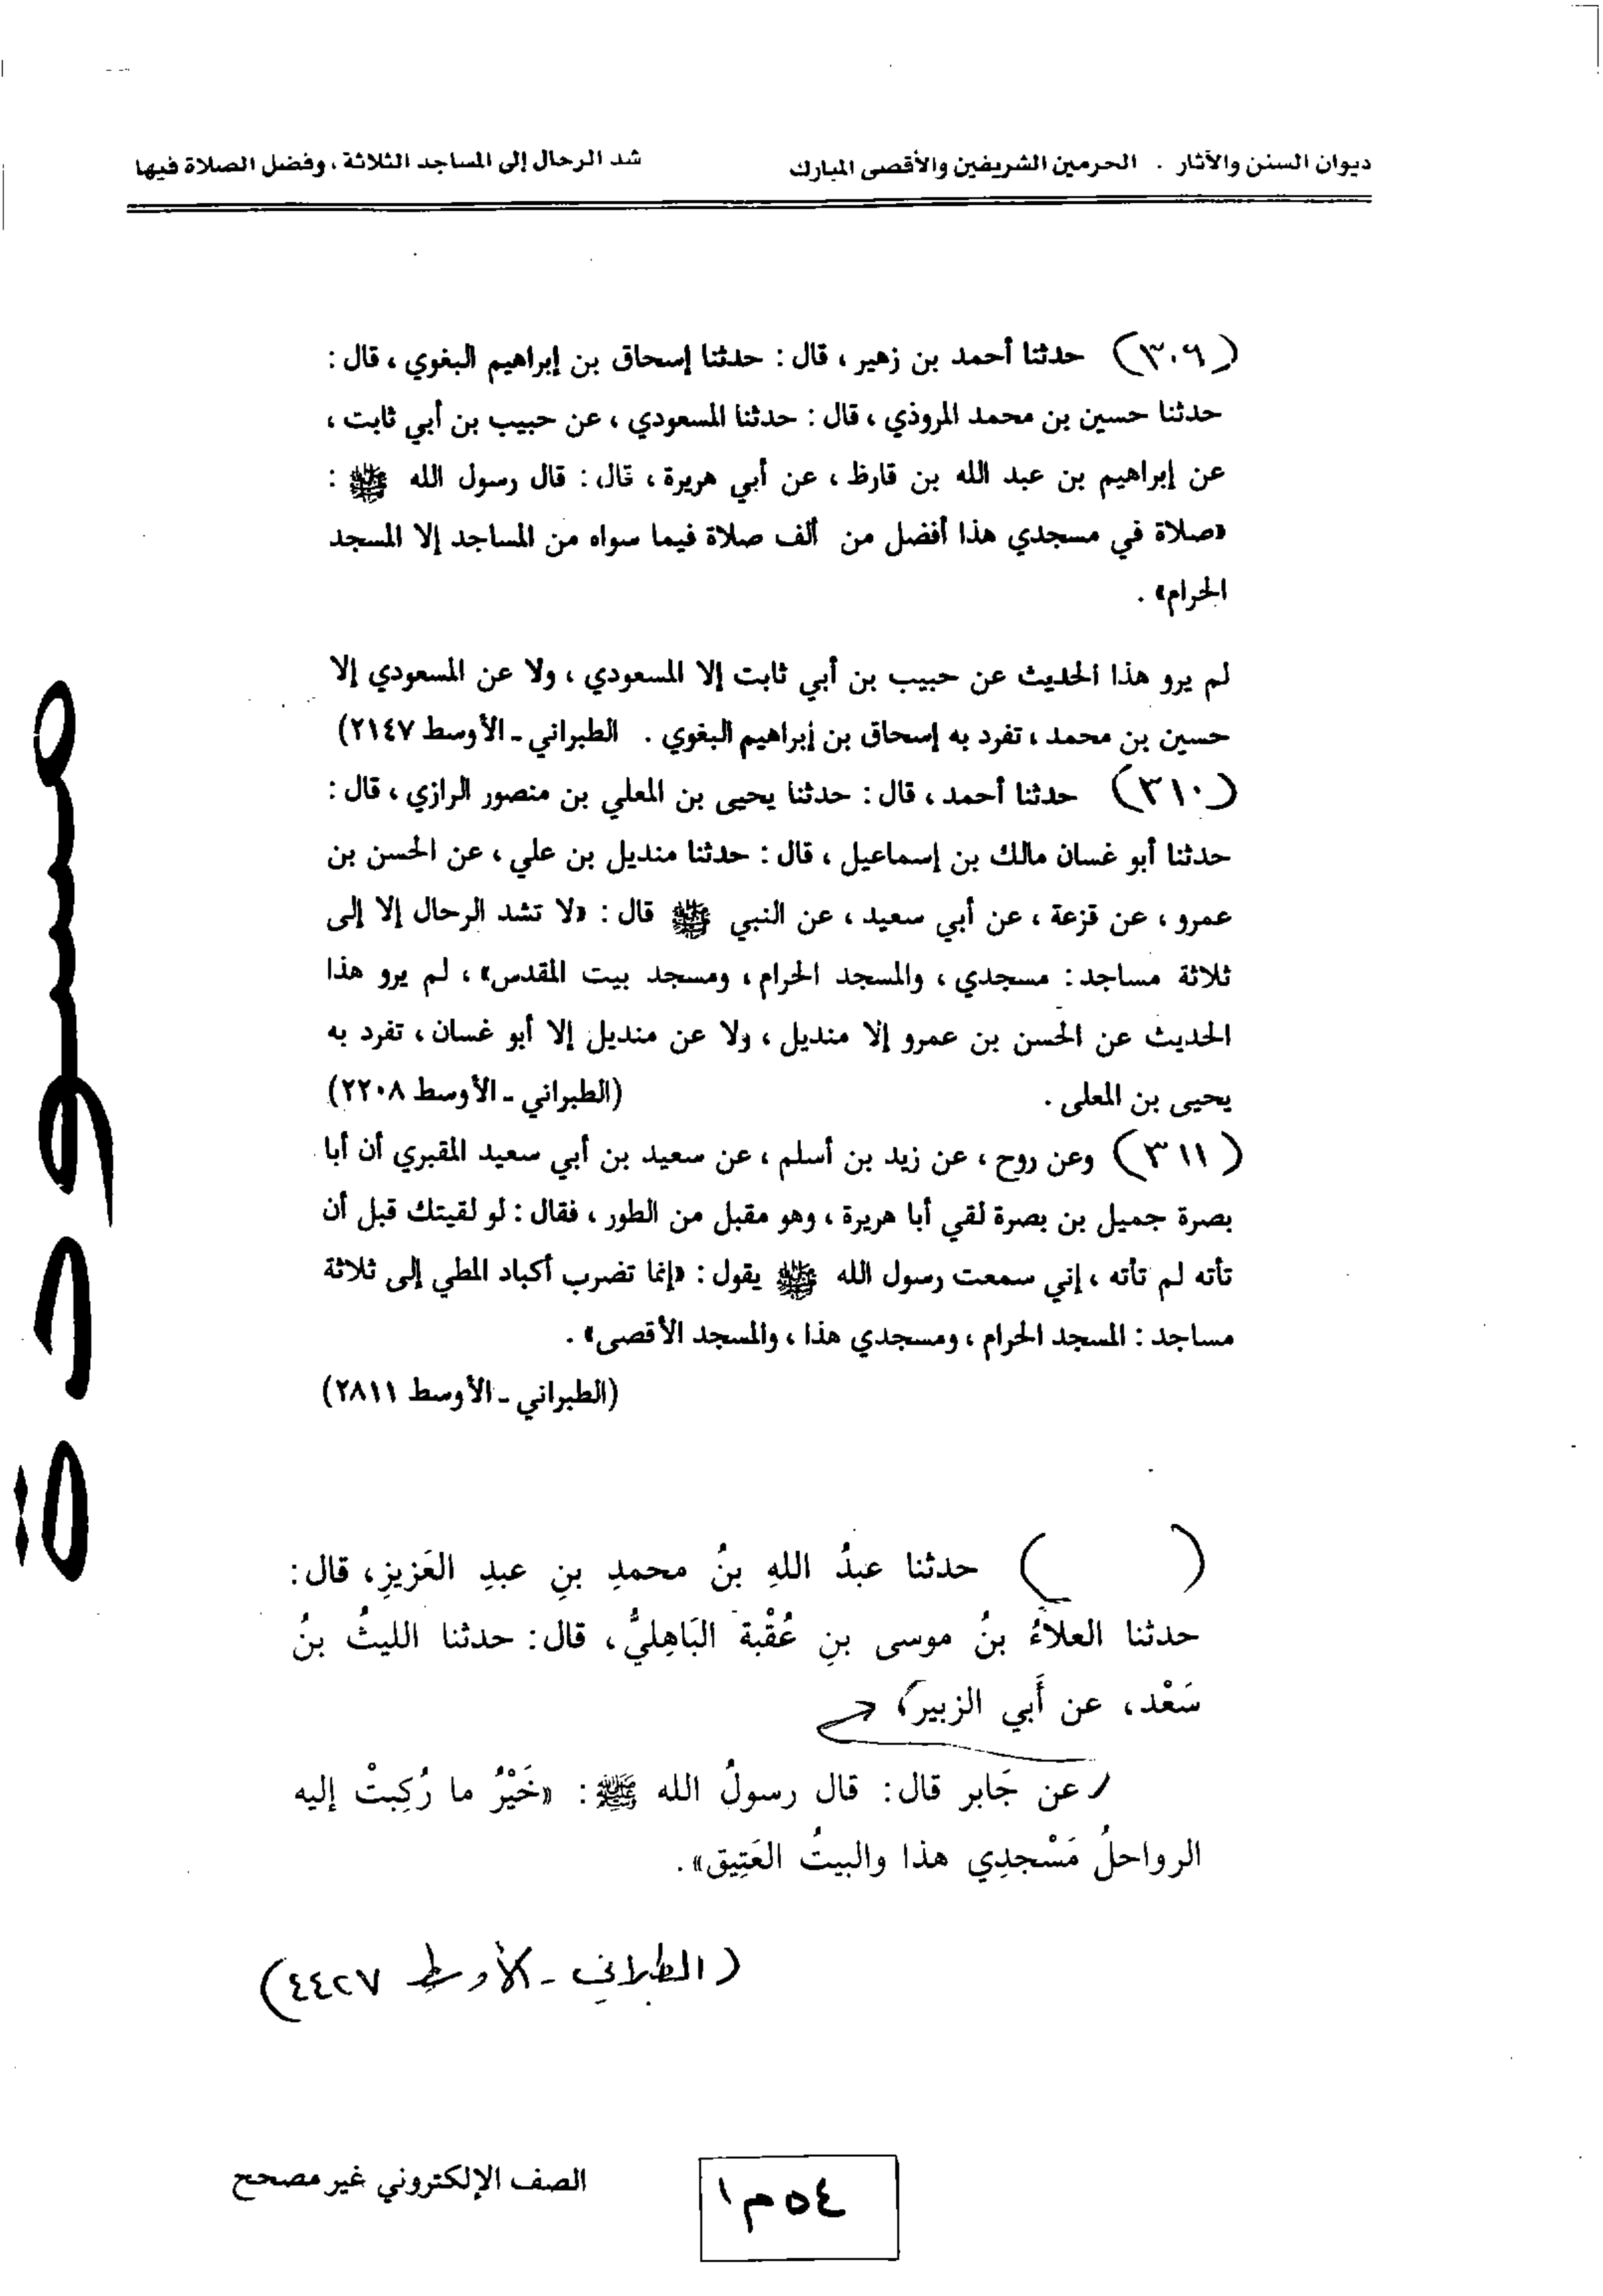 ديوان السنن والآثار . الحرمين الشريفين والأقصى المبارك شد الرحال إلى المساجد الثلاثة ، وفضل الصلاة فيها
(٣٠٩) حدثنا أحمد بن زهير ، قال : حدثنا إسحاق بن إبراهيم البغوي ، قال :
حدثنا حسين بن محمد المروذي ، قال : حدثنا المسعودي ، عن حبيب بن أبي ثابت ،
عن إبراهيم بن عبد الله بن قارظ ، عن أبي هريرة ، قال : قال رسول الله ﷺ :
«صلاة في مسجدي هذا أفضل من ألف صلاة فيما سواه من المساجد إلا المسجد
الحرام» .
لم يرو هذا الحديث عن حبيب بن أبي ثابت إلا المسعودي ، ولا عن المسعودي إلا
حسين بن محمد ، تفرد به إسحاق بن إبراهيم البغوي . الطبراني ـ الأوسط ٢١٤٧)
(٣١٠) حدثنا أحمد ، قال : حدثنا يحيى بن المعلي بن منصور الرازي ، قال :
حدثنا أبو غسان مالك بن إسماعيل ، قال : حدثنا منديل بن علي ، عن الحسن بن
عمرو ، عن قزعة ، عن أبي سعيد ، عن النبي ﷺ قال : «لا تشد الرحال إلا إلى
ثلاثة مساجد : مسجدي ، والمسجد الحرام ، ومسجد بيت المقدس» ، لم يرو هذا
الحديث عن الحسن بن عمرو إلا منديل ، ولا عن منديل إلا أبو غسان ، تفرد به
يحيى بن المعلى . (الطبراني ـ الأوسط ٢٢٠٨)
(٣١١) وعن روح ، عن زيد بن أسلم ، عن سعيد بن أبي سعيد المقبري أن أبا
بصرة جميل بن بصرة لقي أبا هريرة ، وهو مقبل من الطور ، فقال : لو لقيتك قبل أن
تأته لم تأته ، إني سمعت رسول الله ﷺ يقول : «إنما تضرب أكباد المطي إلى ثلاثة
مساجد : المسجد الحرام ، ومسجدي هذا ، والمسجد الأقصى» .
(الطبراني ـ الأوسط ٢٨١١)
( ) حدثنا عبدُ اللهِ بنُ محمدِ بنِ عبدِ العَزيزِ، قال:
حدثنا العلاءُ بنُ موسى بنِ عُقْبة البَاهِليُّ، قال: حدثنا الليثُ بنُ
سَعْد، عن أَبي الزبير،
عن جَابر قال: قال رسولُ الله ﷺ: «خَيْرُ ما رُكِبتْ إليه
الرواحلُ مَسْجدِي هذا والبيتُ العَتِيق».
(الطبراني - الأوسط ٤٤٢٧)
الصف الإلكتروني غير مصحح
٥٤ م ١
مسودة